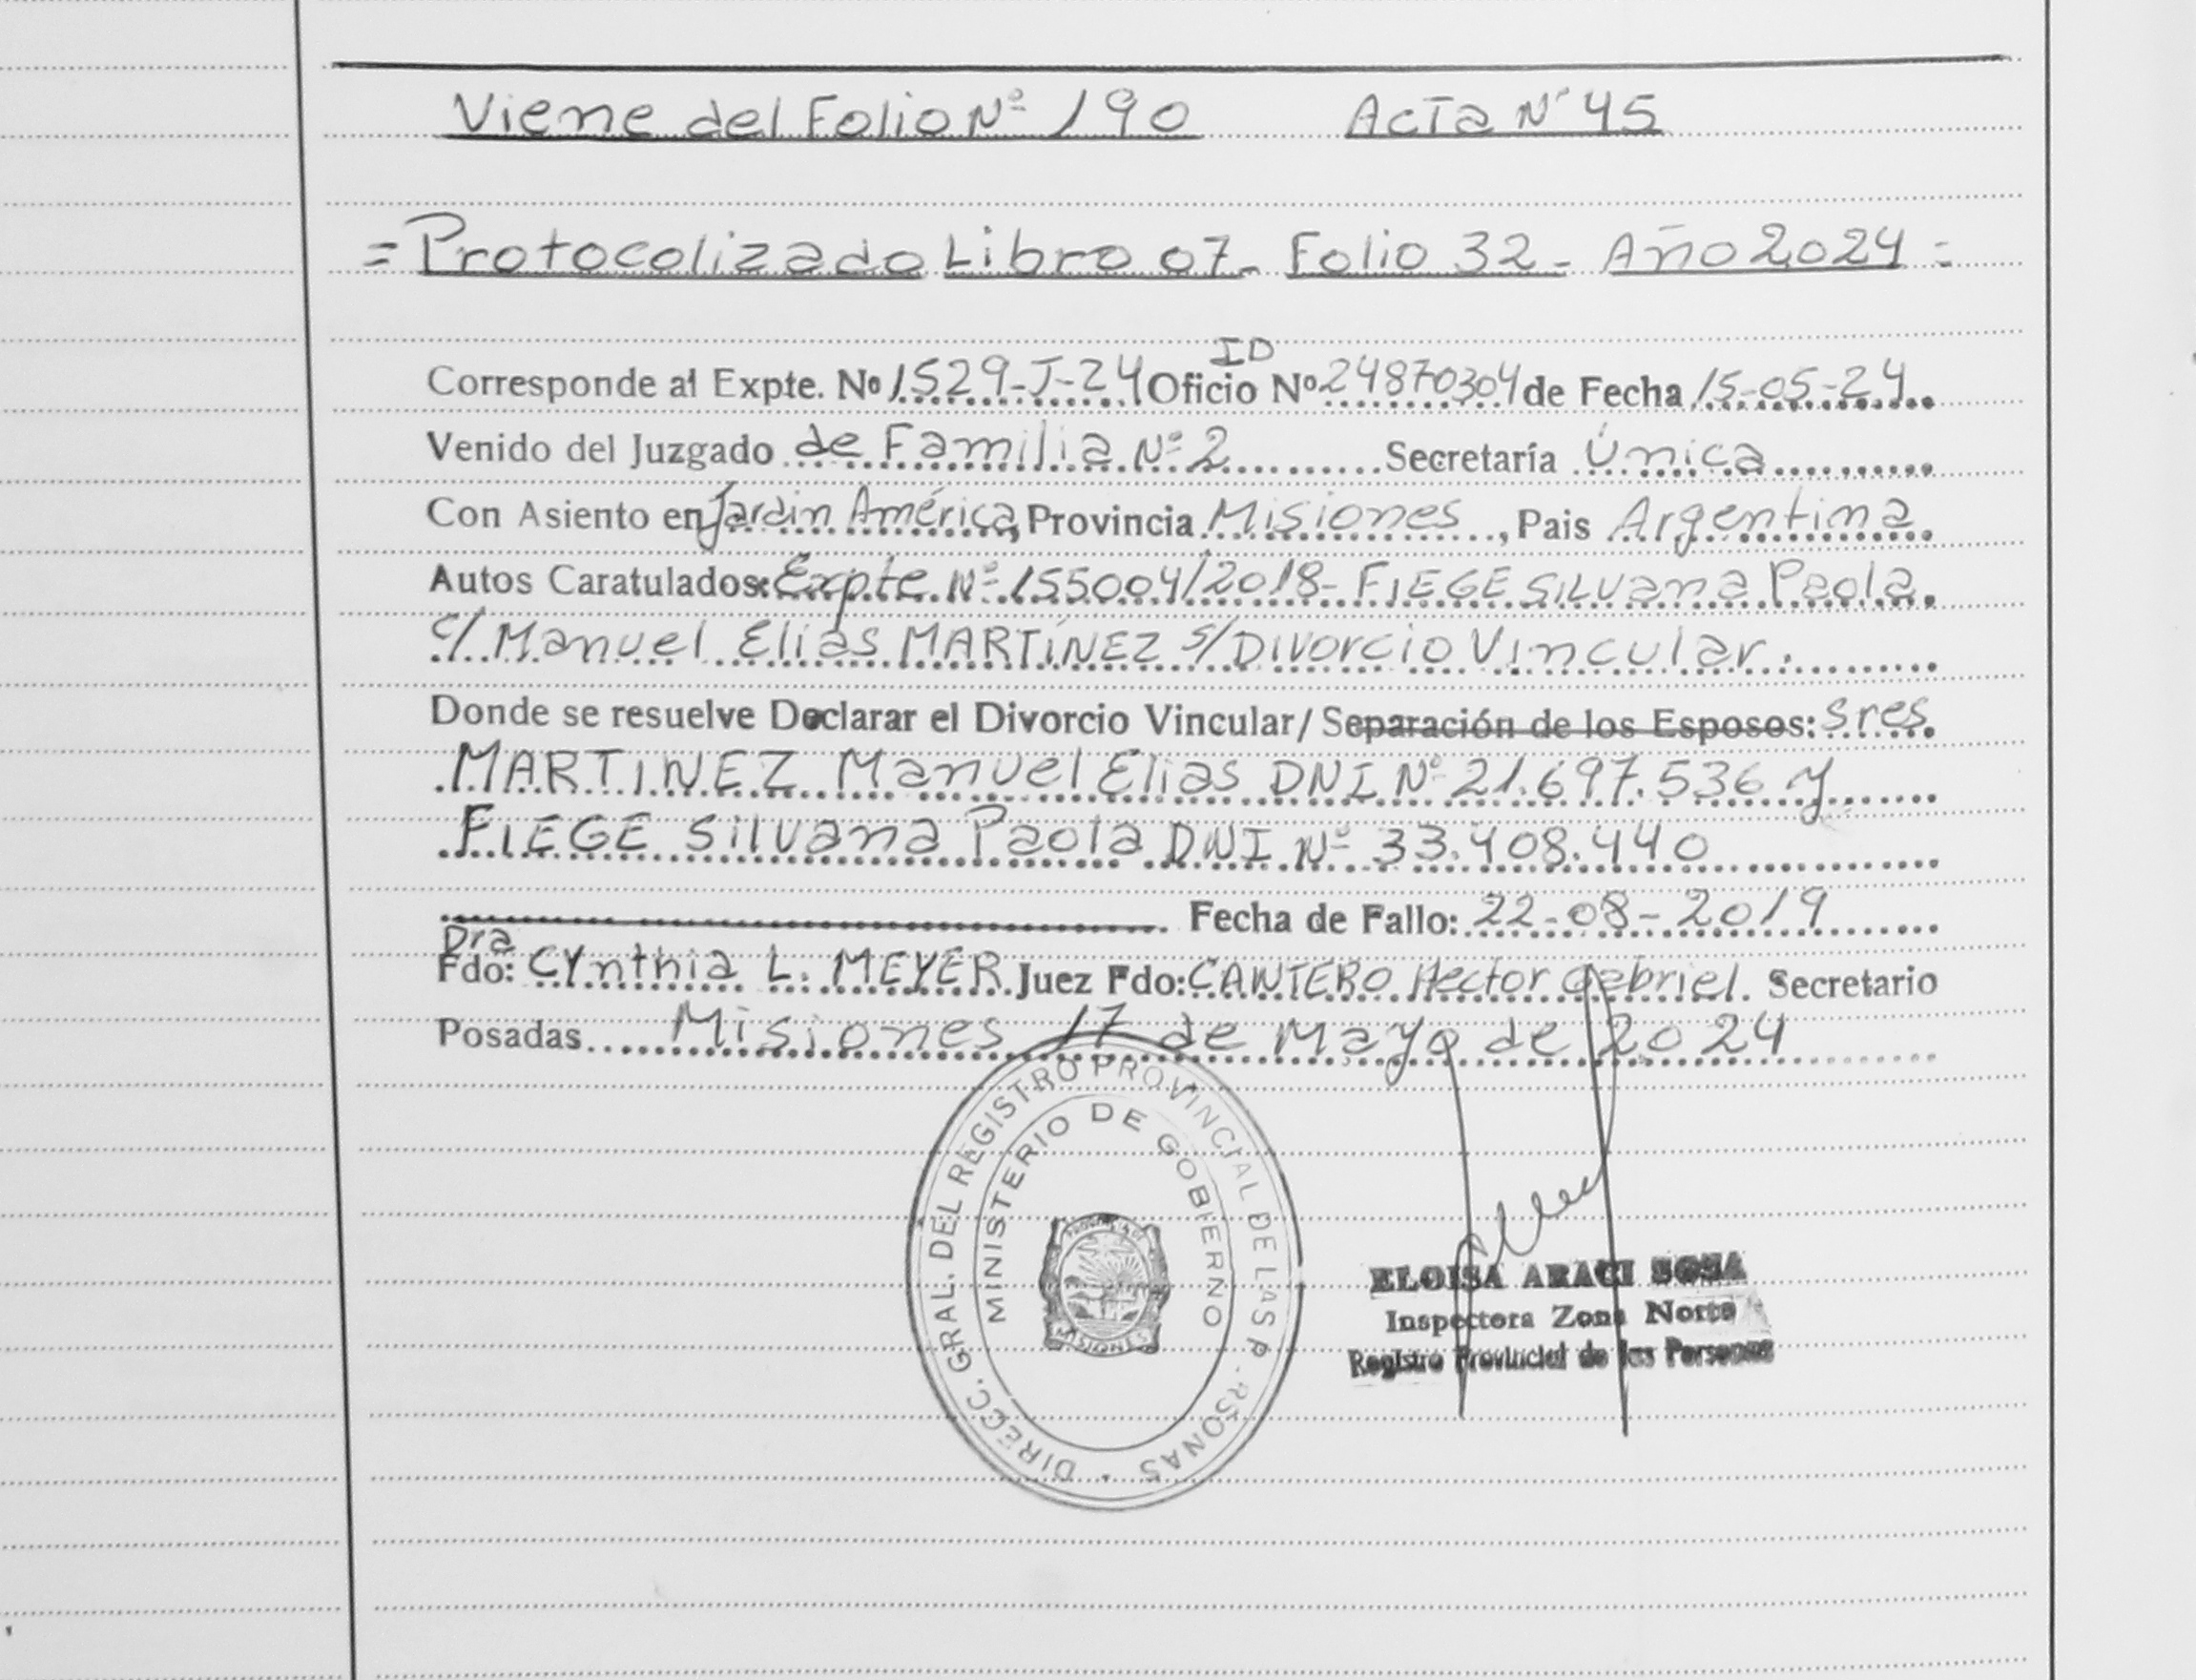 Viene del Folio Nº 190 Acta Nº 45
= Protocolizado Libro 07- Folio 32- Año 2024 =
ID
Corresponde al Expte. Nº 1529-J-24 Oficio Nº 24870304 de Fecha 15-05-24
Venido del Juzgado de Familia Nº 2 Secretaría Única
Con Asiento en Jardin América, Provincia Misiones, Pais Argentina
Autos Caratulados: Expte. Nº 155004/2018- FIEGE SILVana Paola
c/ Manuel Elias MARTÍNEZ s/ Divorcio Vincular.
Donde se resuelve Declarar el Divorcio Vincular/ Separación de los Esposos: Sres
MARTINEZ Manuel Elias DNI Nº 21.697.536 y
FIEGE Silvana Paola DNI Nº 33.408.440
Fecha de Fallo: 22-08-2019
Dra
Fdo: Cynthia L. MEYER Juez Fdo: CANTERO Hector Gabriel. Secretario
Posadas Misiones 17 de Mayo de 2024
DIRECC. GRAL. DEL REGISTRO PROVINCIAL DE LAS P RSONAS
MINISTERIO DE GOBIERNO
MISIONES
ELOISA ARACI SOSA
Inspectora Zona Norte
Registro Provincial de las Personas